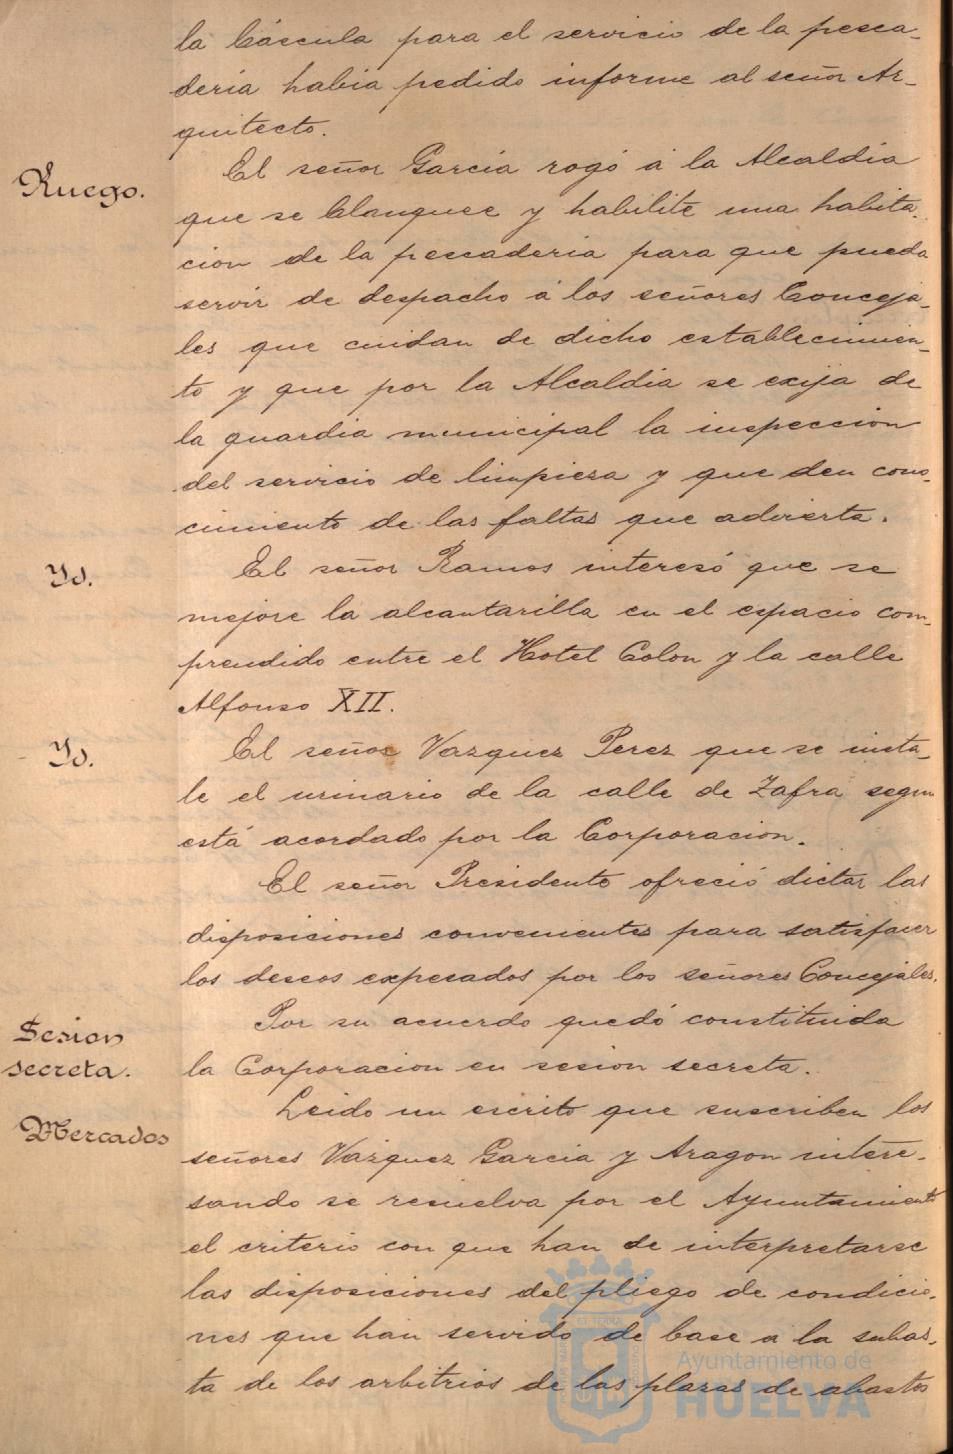 la báscula para el servicio de la pesca-
deria habia pedido informe al señor Ar-
quitecto.
Ruego.
El señor Garcia rogó á la Alcaldia
que se blanquee y habilite una habita-
cion de la pescaderia para que pueda
servir de despacho á los señores Conceja-
les que cuidan de dicho establecimien-
to y que por la Alcaldia se exija de
la guardia municipal la inspeccion
del servicio de limpieza y que den cono-
cimiento de las faltas que advierta.
Yd.
El señor Ramos interesó que se
mejore la alcantarilla en el espacio com-
prendido entre el Hotel Colon y la calle
Alfonso XII.
Yd.
El señor Vazquez Perez que se insta-
le el urinario de la calle de Zafra segun
está acordado por la Corporacion.
El señor Presidente ofreció dictar las
disposiciones convenientes para satisfacer
los deseos expesados por los señores Concejales.
Sesion
secreta.
Por su acuerdo quedó constituida
la Corporacion en sesion secreta.
Mercados
Leido un escrito que suscriben los
señores Vazquez Garcia y Aragon intere-
sando se resuelva por el Ayuntamiento
el criterio con que han de interpretarse
las disposiciones del pliego de condicio-
nes que han servido de base a la subas-
ta de los arbitrios de las plazas de abastos
Ayuntamiento de
HUELVA